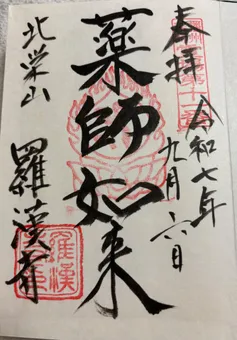 奉拝
令和七年
九月六日
薬師如来
北栄山
羅漢寺
羅漢